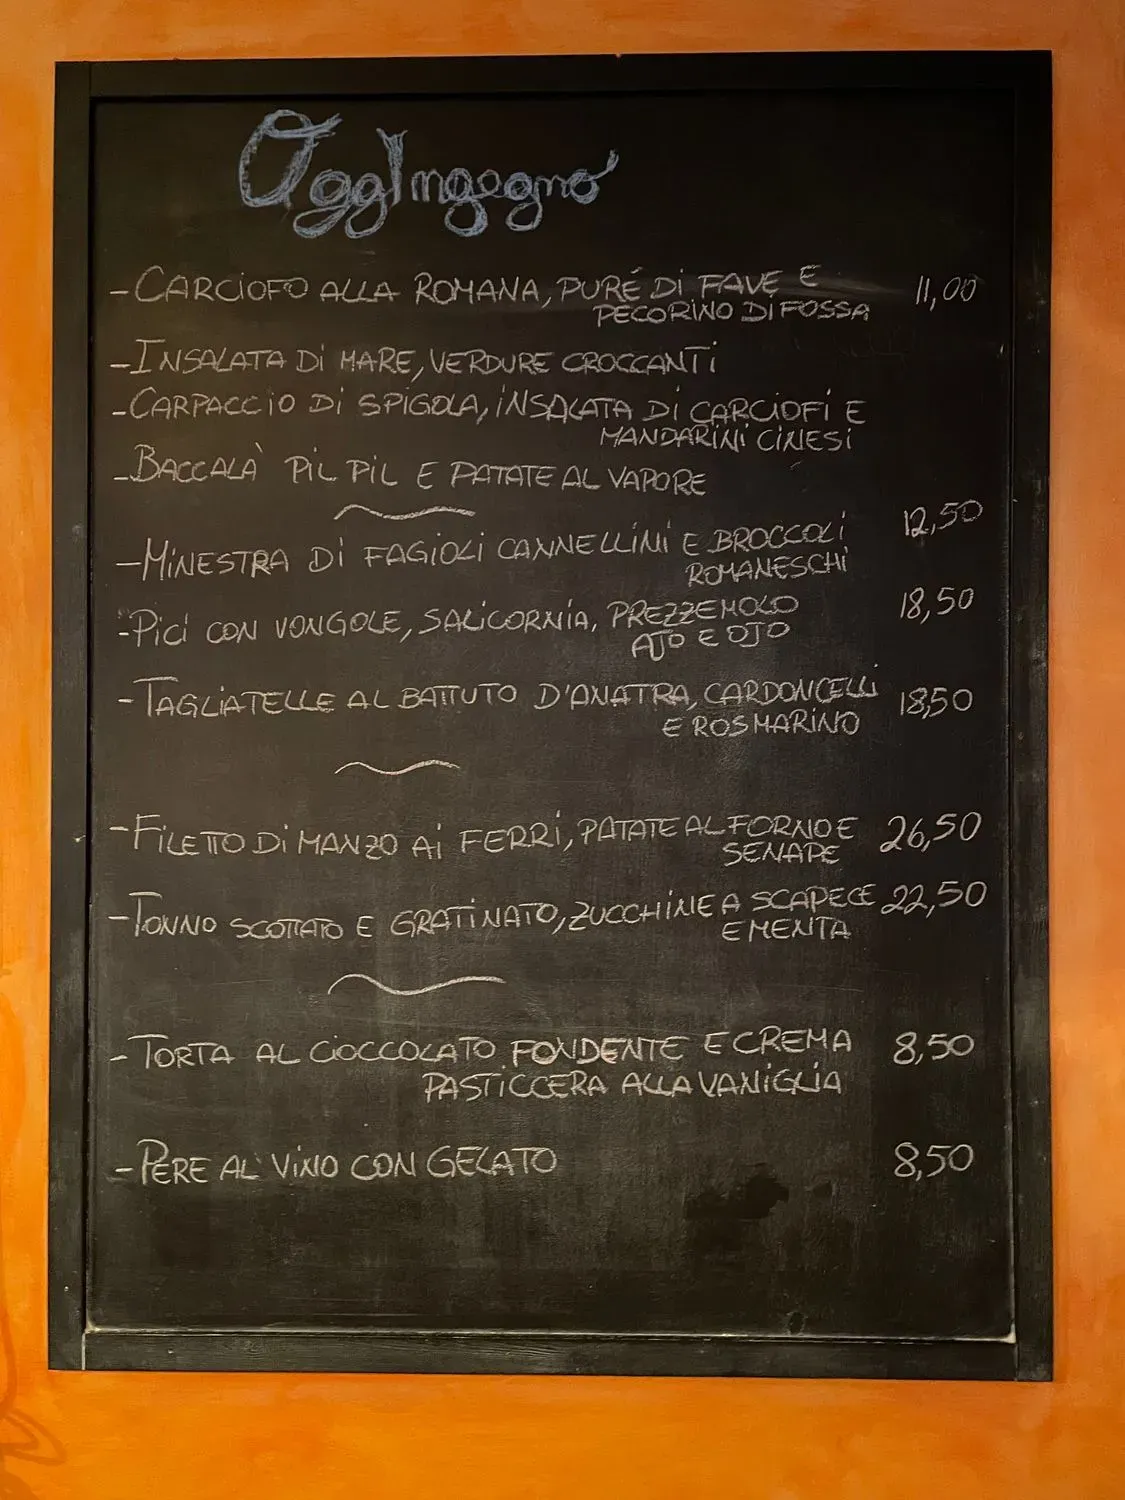 OggIngegno
- CARCIOFO ALLA ROMANA, PURÉ DI FAVE E 11,00
PECORINO DI FOSSA
- INSALATA DI MARE, VERDURE CROCCANTI
- CARPACCIO DI SPIGOLA, INSALATA DI CARCIOFI E
MANDARINI CINESI
- BACCALÀ PIL PIL E PATATE AL VAPORE
- MINESTRA DI FAGIOLI CANNELLINI E BROCCOLI 12,50
ROMANESCHI
- PICI CON VONGOLE, SALICORNIA, PREZZEMOLO 18,50
AJO E OJO
- TAGLIATELLE AL BATTUTO D'ANATRA, CARDONCELLI 18,50
E ROSMARINO
- FILETTO DI MANZO AI FERRI, PATATE AL FORNO E 26,50
SENAPE
- TONNO SCOTTATO E GRATINATO, ZUCCHINE A SCAPECE 22,50
E MENTA
- TORTA AL CIOCCOLATO FONDENTE E CREMA 8,50
PASTICCERA ALLA VANIGLIA
- PERE AL VINO CON GELATO 8,50